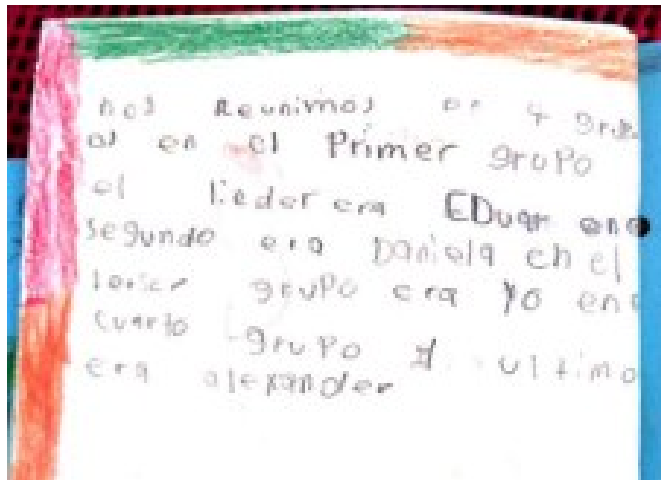 nos Reunimos en 4 grup
os en el Primer gruPo
el lieder era EDuar en e
segundo era Daniela en el
tericer gruPo era yo en e
cuarto gruPo ultimo
era alexander